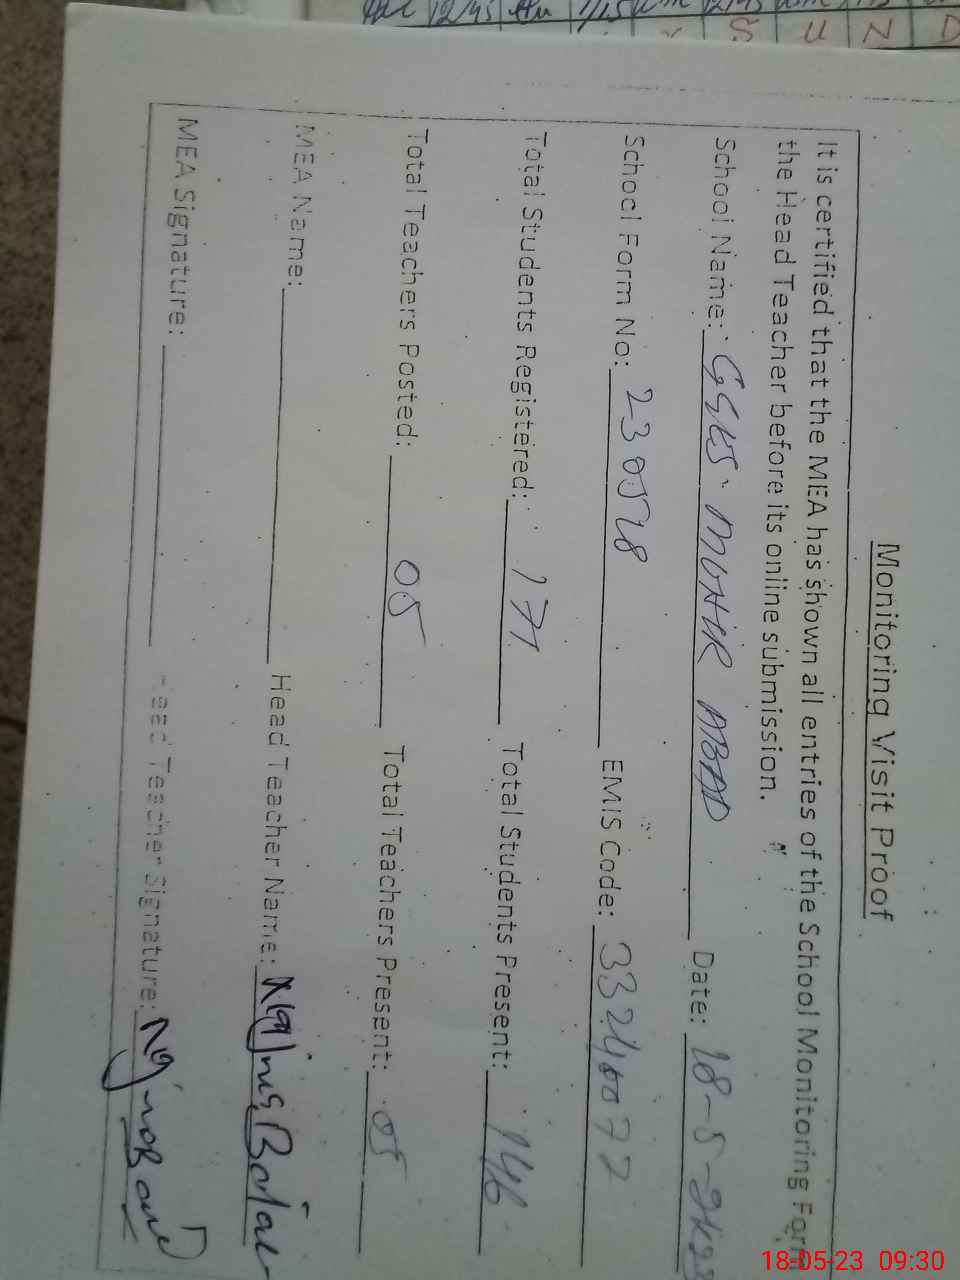 Monitoring Visit Proof
It is certified that the MEA has shown all entries of the School Monitoring Form
the Head Teacher before its online submission.
School Name: GGES MUHIR ABAD Date: 18-5-
School Form No: 230528 EMIS Code: 33240077
Total Students Registered: 171 Total Students Present: 146
Total Teachers Posted: 05 Total Teachers Present: 05
MEA Name: Head Teacher Name:
MEA Signature: Head Teacher Signature:
18-05-23 09:30